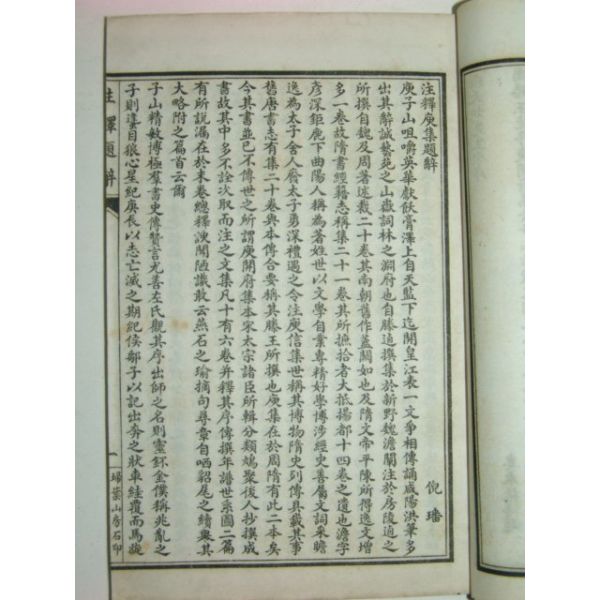 注釋庾集題辭
倪璠
庾子山咀嚼英華厭飫膏澤上自天監下迄開皇江表一文爭相傳誦咸陽洪筆多
出其辭誠藝苑之山嶽詞林之淵府也自滕逌撰集於新野魏澹闡注於房陵逌之
所撰自魏及周著述裁二十卷其南朝舊作蓋闕如也及隋文帝平陳所得逸文增
多一卷故隋書經籍志稱集二十一卷其所撫拾者大抵揚都十四卷之遺也澹字
彥深鉅鹿下曲陽人稱為著姓世以文學自業專精好學博涉經史善屬文詞采贍
逸為太子舍人廢太子勇深禮遇之令注庾信集世稱其博物隋史列傳具載其事
舊唐書志有集二十卷與本傳合要稱其滕王所撰也庾集在於周隋有此二本矣
今其書並已不傳世之所謂庾開府集本宋太宗諸臣所輯分類鳩聚後人抄撰成
書故其中多不詮次取而注之文集凡十有六卷并釋其序傳撰年譜世系圖二篇
有所說漏在於末卷總釋諛聞陋識敢云燕石之瑜摘句尋章自哂貂尾之續與其
大略附之篇首云爾
子山精敏博極羣書史傳贊言尤善左氏觀其序出師之名則靈鈈金僕稱兆亂之
子則蠭目狼心星紀庚辰以志亡滅之期紀侯鄅子以記出奔之狀車絓覆而馬旋
注釋題辭
一
掃葉山房石印